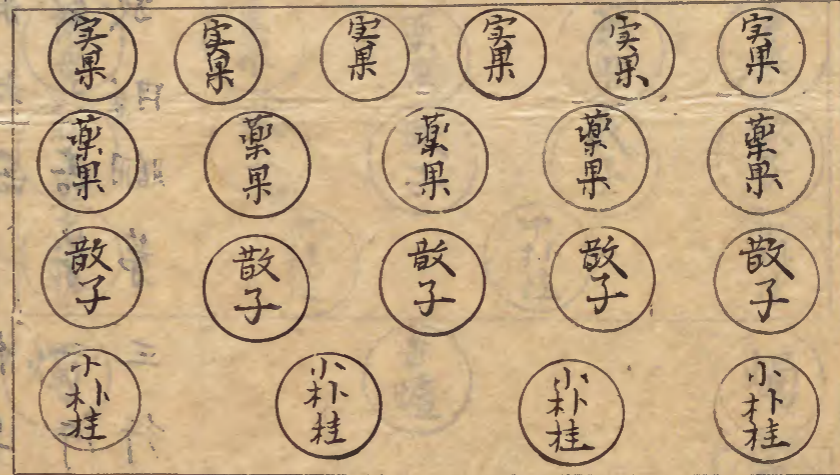 実果 実果 実果 実果 実果 実果
薬果 薬果 薬果 薬果 薬果
散子 散子 散子 散子 散子
小朴桂 小朴桂 小朴桂 小朴桂